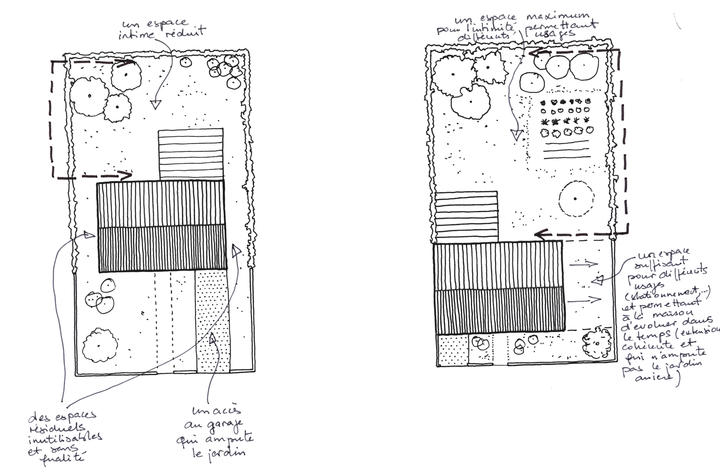 un espace
intime réduit
des espaces
résiduels
inutilisables
et sans
qualité
un accès
au garage
qui ampute
le jardin
un espace maximum
pour l'intimité, permettant
différents usages
un espace
suffisant
pour différents
usages
(stationnement...)
et permettant
à la maison
d'évoluer dans
le temps (extension
cohérente et
qui n'ampute
pas le jardin
arrière)